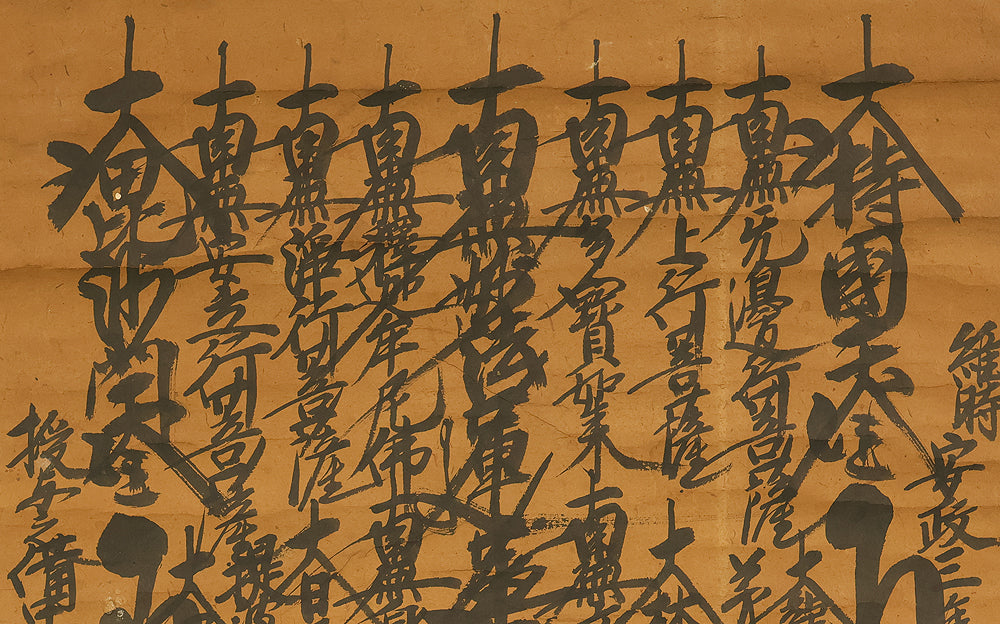 維時安政三年
大持國天王
南無无邊行菩薩
南無上行菩薩
南無多寶如来
南無妙法蓮華
南無釋迦牟尼佛
南無淨行菩薩
南無安立行菩薩
大毘沙門天王
授与之備中
大梵
南無
南無
大日
提婆
大